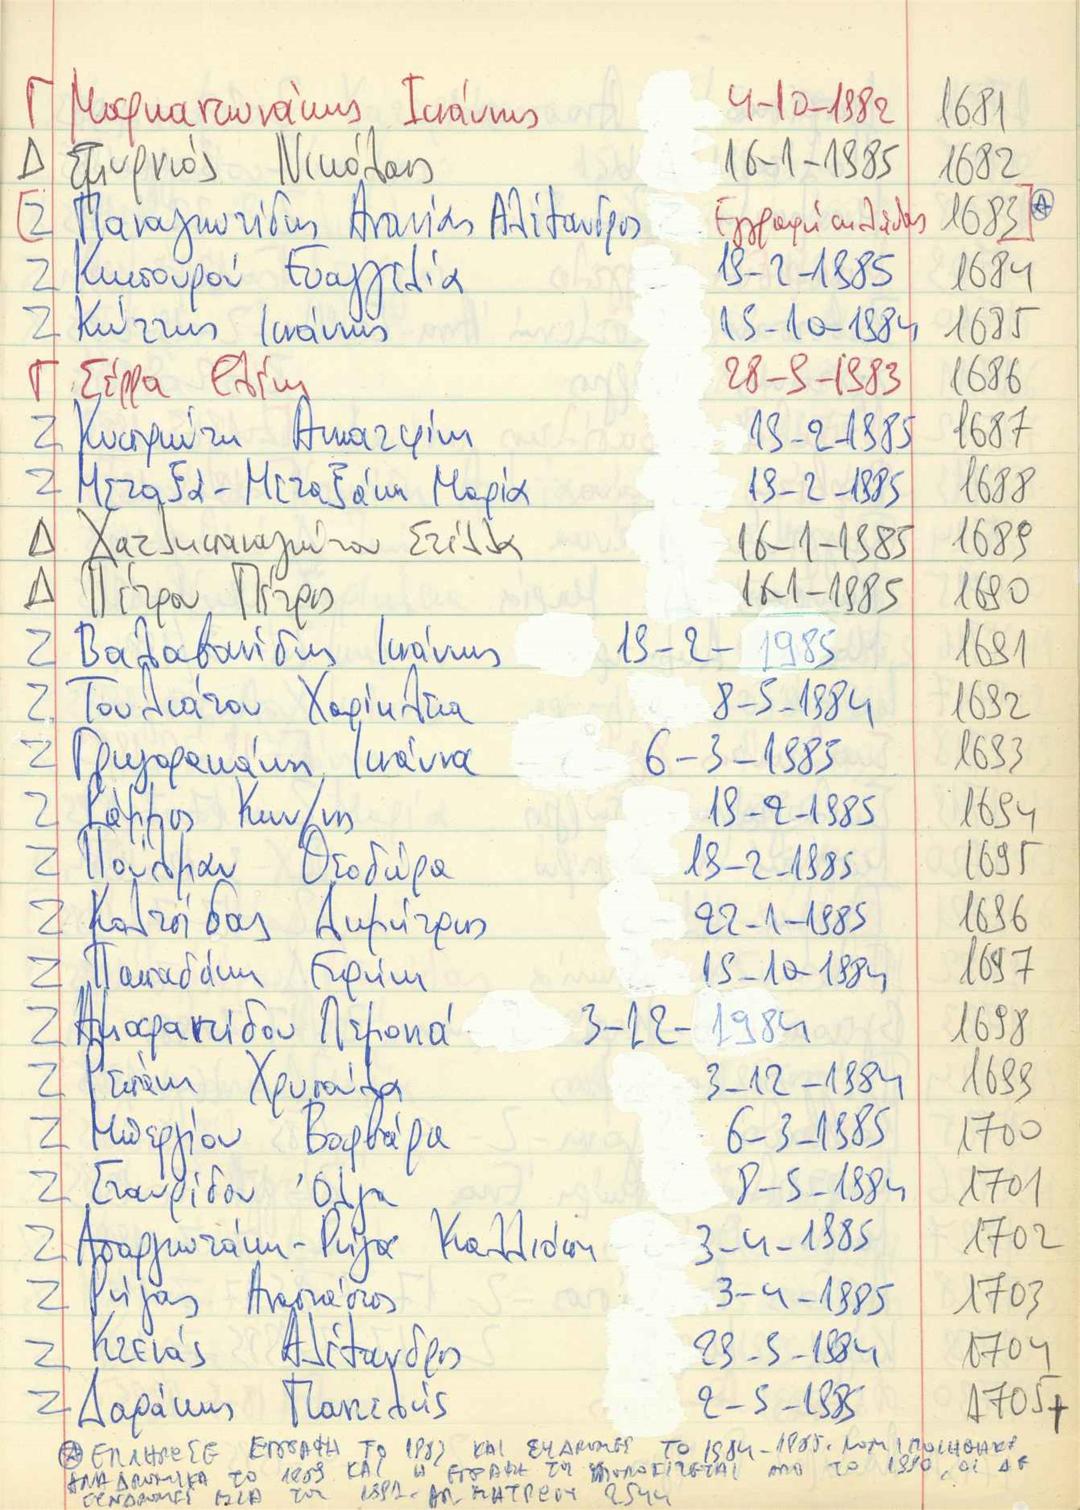 Γ Μαρκαντωνάκης Ιωάννης 4-10-1982 1681
Δ Σμυρνιός Νικόλαος 16-1-1985 1682
Ζ Παναγιωτίδης Ανανίας Αλέξανδρος Εγγραφή 1683
Ζ Ευαγγελία 19-2-1985 1684
Ζ Κώττης Ιωάννης 15-10-1984 1685
Γ Σέρρα Ελένη 28-9-1983 1686
Ζ Αικατερίνη 19-2-1985 1687
Ζ Μεταξά-Μεταξάκη Μαρία 19-2-1985 1688
Δ Χατζηπαναγιώτου Στέλλα 16-1-1985 1689
Δ Πέτρου Πέτρος 16-1-1985 1690
Ζ Βαλαβανίδης Ιωάννης 19-2-1985 1691
Ζ Τουλιάτου Χαρίκλεια 8-5-1984 1692
Ζ Γρηγορακάκη Ιωάννα 6-3-1985 1693
Ζ Σάμμος Κων/νης 19-2-1985 1694
Ζ Πούλμαν Θεοδώρα 19-2-1985 1695
Ζ Καλτσίδας Δημήτριος 22-1-1985 1696
Ζ Παπαδάκη Ειρήνη 15-10-1984 1697
Ζ Αμαραντίδου Λεμονιά 3-12-1984 1698
Ζ Ρεπάκη Χρυσούλα 3-12-1984 1699
Ζ Μπεργίου Βαρβάρα 6-3-1985 1700
Ζ Σταυρίδου Όλγα 8-5-1984 1701
Ζ Απαργιωτάκη-Ρήγα Καλλιόπη 3-4-1985 1702
Ζ Ρήγας Αναστάσιος 3-4-1985 1703
Ζ Κτενάς Αλέξανδρος 29-5-1984 1704
Ζ Δαράκης Παντελής 2-5-1985 1705
ΕΠΛΗΡΩΣΕ ΕΓΓΡΑΦΗ ΤΟ 1983 ΚΑΙ ΣΥΝΔΡΟΜΕΣ ΤΟ 1984-1985.
ΑΝΑΔΡΟΜΙΚΑ ΤΟ 1989 ΚΑΙ Η ΕΓΓΡΑΦΗ ΤΟΥ ΥΠΟΛΟΓΙΖΕΤΑΙ ΑΠΟ ΤΟ 1990, ΟΙ ΔΕ
ΣΥΝΔΡΟΜΕΣ ΑΡ. ΜΗΤΡΩΟΥ 2544